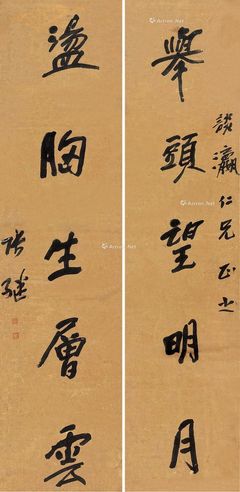 談瀛仁兄正之
舉頭望明月
盪胸生層雲
張繼
Artron.Net
Artron.Net
Artron.Net